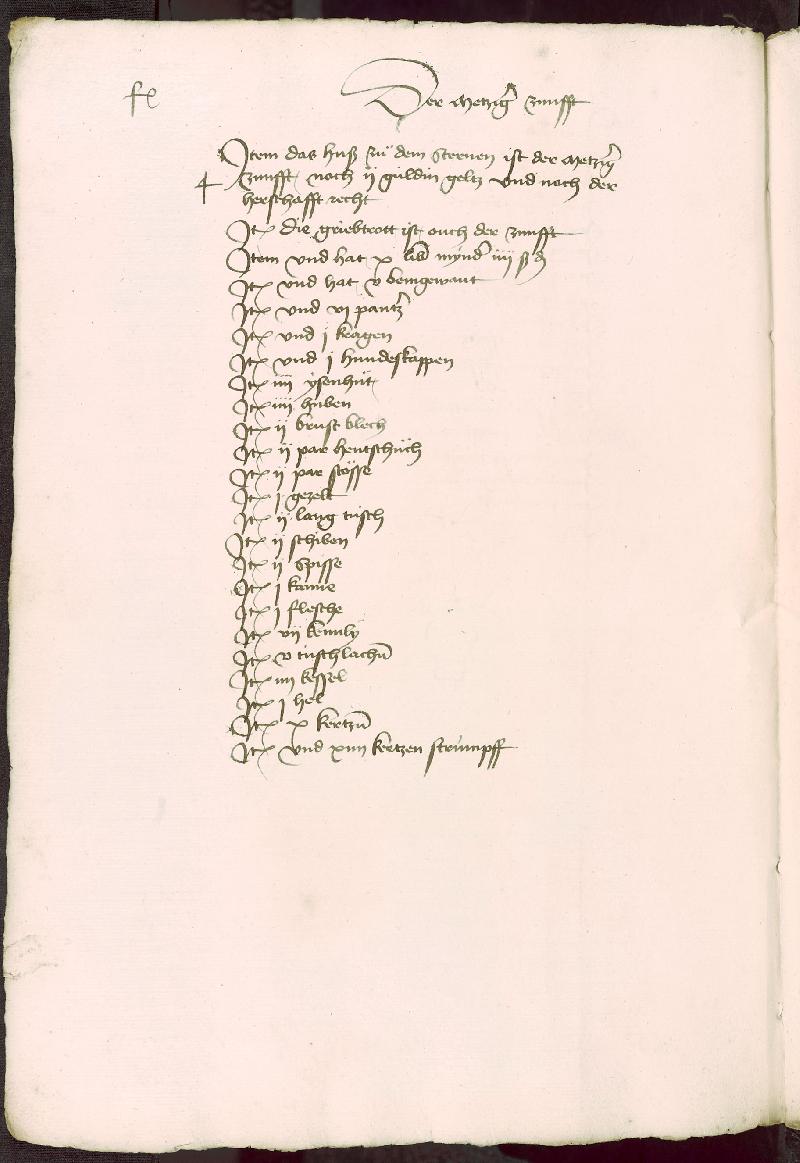 Der metzig zunfft
Item das huß zuͦ dem Sternen ist der metzig
zunfft noch ij guldin geltz vnd noch der
herschafft recht
Itͫ die griebtrott ist ouch der zunfft
Item vnd hat x lib mynder iiij ß d
Itͫ vnd hat v beingewant
Itͫ vnd vj pantzer
Itͫ vnd j kragen
Itͫ vnd j hundeskappen
Itͫ iiij ysenhüt
Itͫ iiij huben
Itͫ ij brust blech
Itͫ ij par hentschüch
Itͫ ij par stösse
Itͫ j gezelt
Itͫ ij lang tisch
Itͫ ij schiben
Itͫ ij Spisse
Itͫ j kanne
Itͫ j flesche
Itͫ vij kennly
Itͫ v tischlachen
Itͫ iiij kessel
Itͫ j hel
Itͫ x kertzen
Itͫ vnd xiiij kertzen strümpff